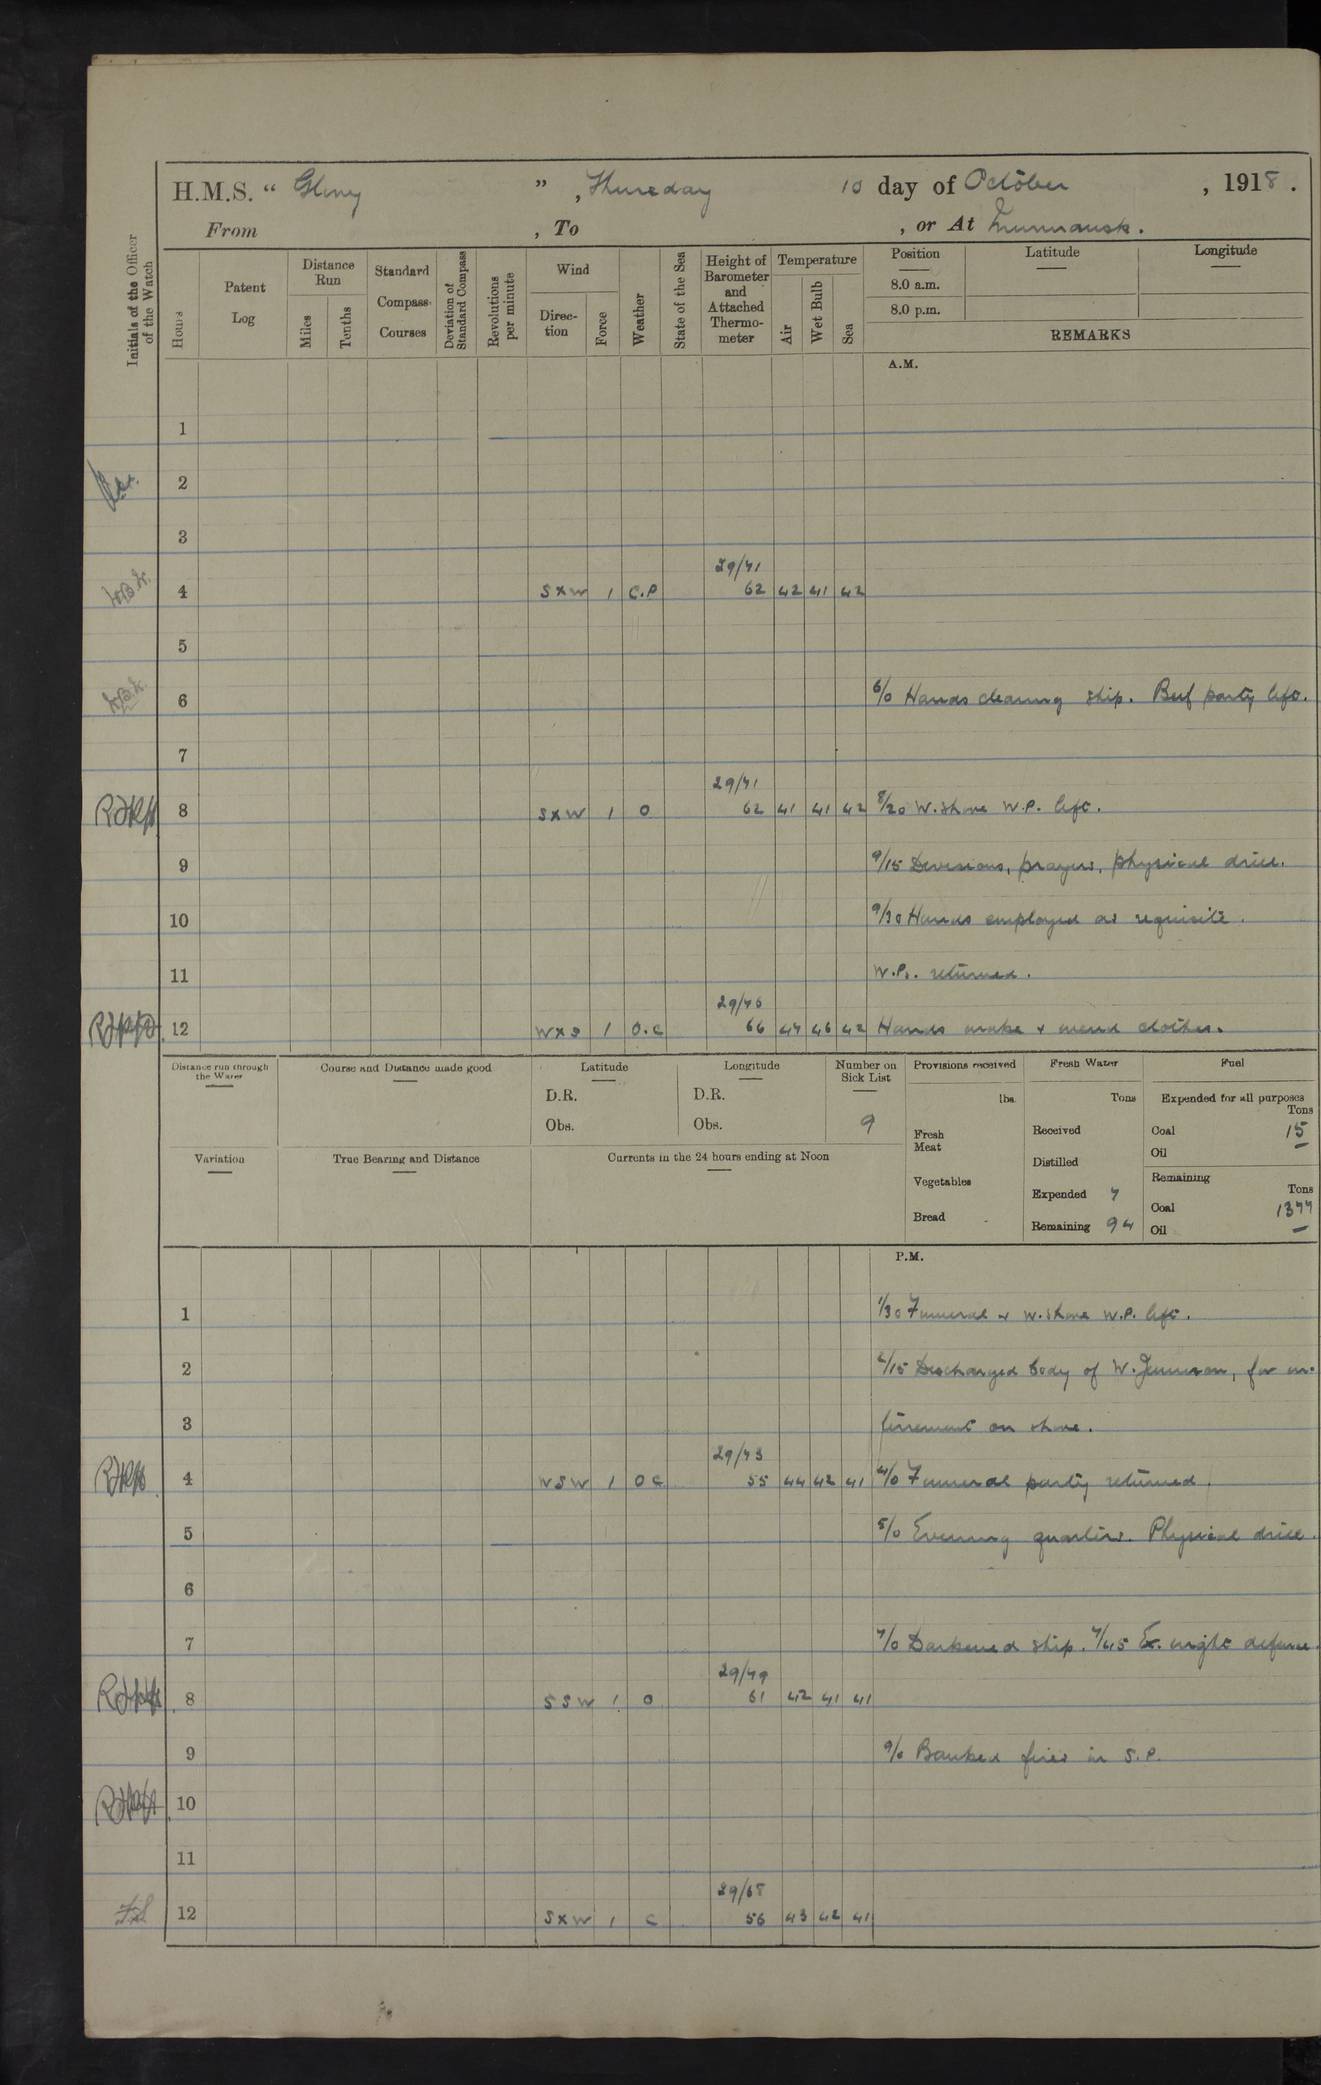 H.M.S. “ Glory ” , Thursday 10 day of October , 1918 .
From , To , or At Murmansk.
Initials of the Officer of the Watch
Hours
Patent Log
Distance Run
Miles
Tenths
Standard Compass Courses
Deviation of Standard Compass
Revolutions per minute
Wind
Direction
Force
Weather
State of the Sea
Height of Barometer and Attached Thermometer
Temperature
Air
Wet Bulb
Sea
Position
8.0 a.m.
8.0 p.m.
Latitude
Longitude
REMARKS
A.M.
1
2
3
29/41
4 SxW 1 C.P 62 42 41 42
5
6 6/0 Hands cleaning ship. Beef party left.
7
29/41
8 SxW 1 O 62 41 41 42 8/20 W. Shore W.P. left.
9 9/15 Divisions, prayers, physical drill.
10 9/30 Hands employed as requisite.
11 W.P. returned.
29/46
12 WxS 1 O.C 66 47 46 42 Hands make & mend clothes.
Distance run through the Water
Course and Distance made good
Latitude
D.R.
Obs.
Longitude
D.R.
Obs.
Number on Sick List
9
Provisions received
lbs.
Fresh Meat
Vegetables
Bread
Fresh Water
Tons
Received
Distilled
Expended 7
Remaining 94
Fuel
Expended for all purposes
Tons
Coal 15
Oil —
Remaining
Tons
Coal 1377
Oil —
Variation
True Bearing and Distance
Currents in the 24 hours ending at Noon
P.M.
1 1/30 Funeral & W. Shore W.P. left.
2 2/15 Discharged body of W. , for in-
3 terrement on shore.
29/43
4 WSW 1 OC 55 44 42 41 4/0 Funeral party returned.
5 5/0 Evening quarters. Physical drill.
6
7 7/0 Darkened ship. 7/45 Ex. night defence.
29/49
8 SSW 1 O 61 42 41 41
9 9/0 Banked fires in S.P.
10
11
29/68
12 SxW 1 C 56 43 42 41